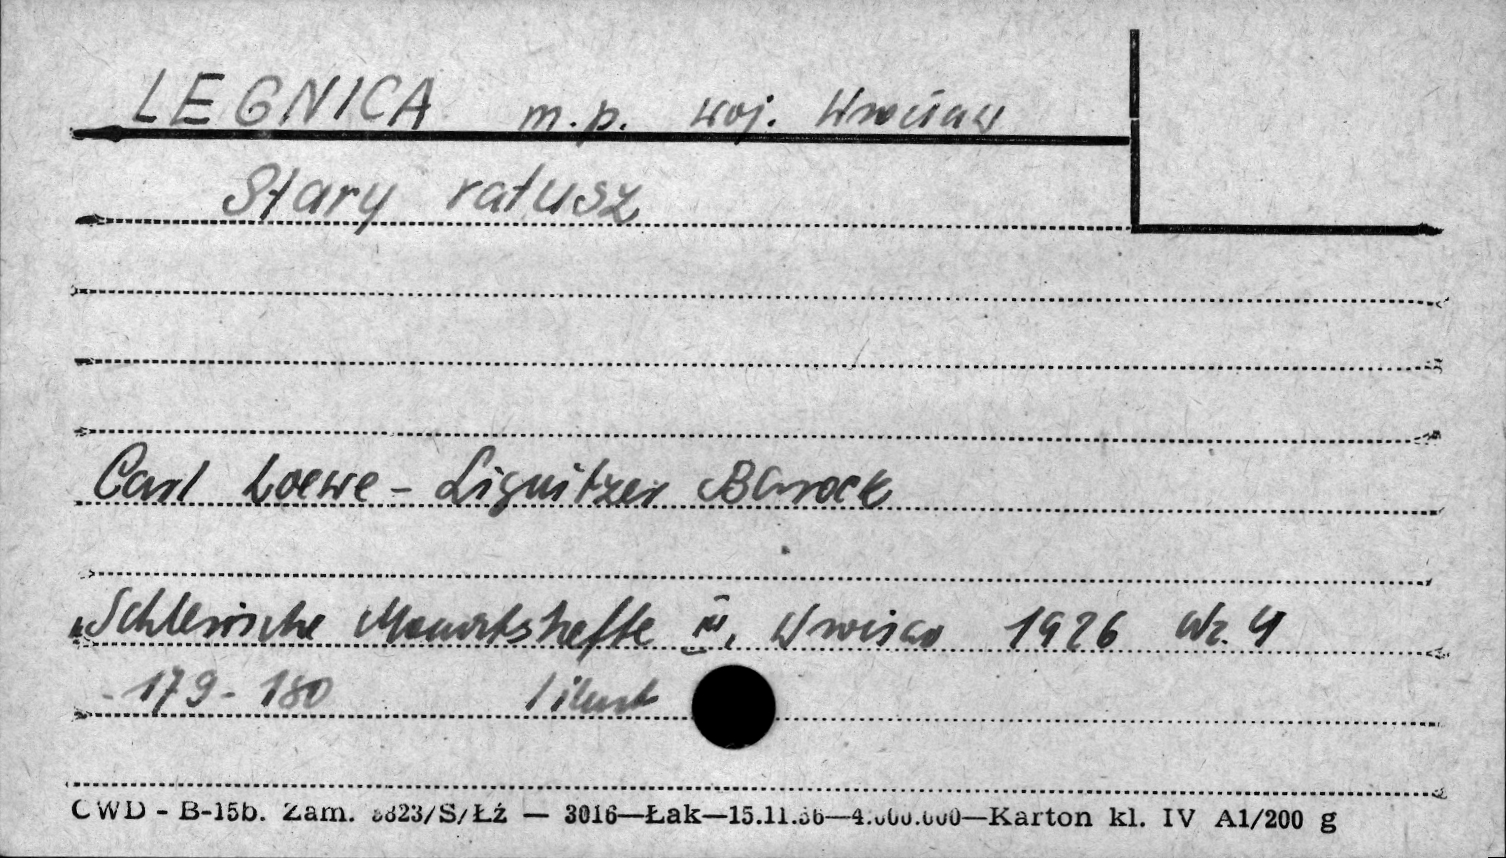 LEGNICA m.p. woj. Wrocław
Stary ratusz
Carl Loewe - Lignitzer Barock
Schlesische Monatshefte III, Wrocław 1926 Nr. 4
- 179 - 180 1 ilustr
CWD - B-15b. Zam. 8823/S/Łź — 3016—Łak—15.11.56—4.000.000—Karton kl. IV A1/200 g